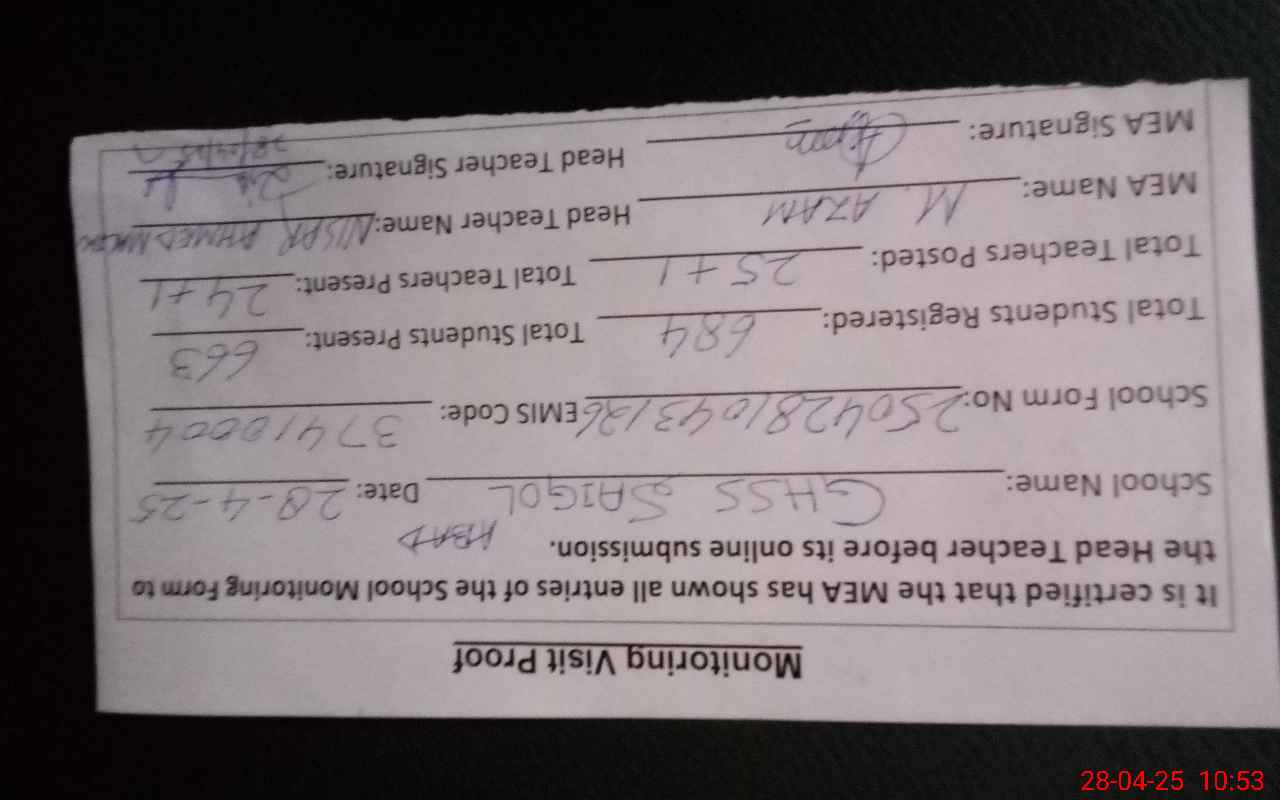 Monitoring Visit Proof
It is certified that the MEA has shown all entries of the School Monitoring Form to
the Head Teacher before its online submission.
School Name: GHSS SAIGOL ABAD Date: 28-4-25
School Form No: 2504281043126 EMIS Code: 37410004
Total Students Registered: 684 Total Students Present: 663
Total Teachers Posted: 25+1 Total Teachers Present: 24+1
MEA Name: M. AZAM Head Teacher Name: NISAR AHMED
MEA Signature: Head Teacher Signature:
28/04/25
28-04-25 10:53